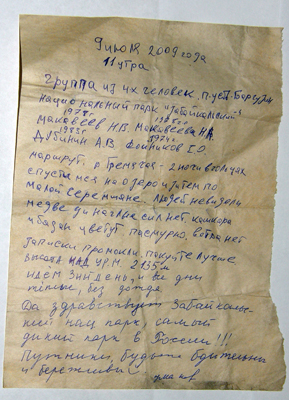 9 июля 2009 года
11 утра
Группа из 4х человек, п. Усть-Баргузин
национальный парк "Забайкальский"
1974 г 1985 г.
Макавеев Н.В. Макавеева Н.А.
1983 г. 1974 г
Дубинин А.В. Ю.
маршрут: р. Гремячая - 2 ночи в
спустимся на озеро и затем по
малой Людей не видели
медведи на нет кашкара
и бадан цветут пасмурно, ветра нет
Записки промокли, пакуйте лучше
высота над ур. м. 2135 м
идем 3ий день, и все дни
тёплые, без дождя
Да здравствует Забайкальс-
кий нац парк, самый
дикий парк в России!!!
Путники, будьте бдительны
и бережливы